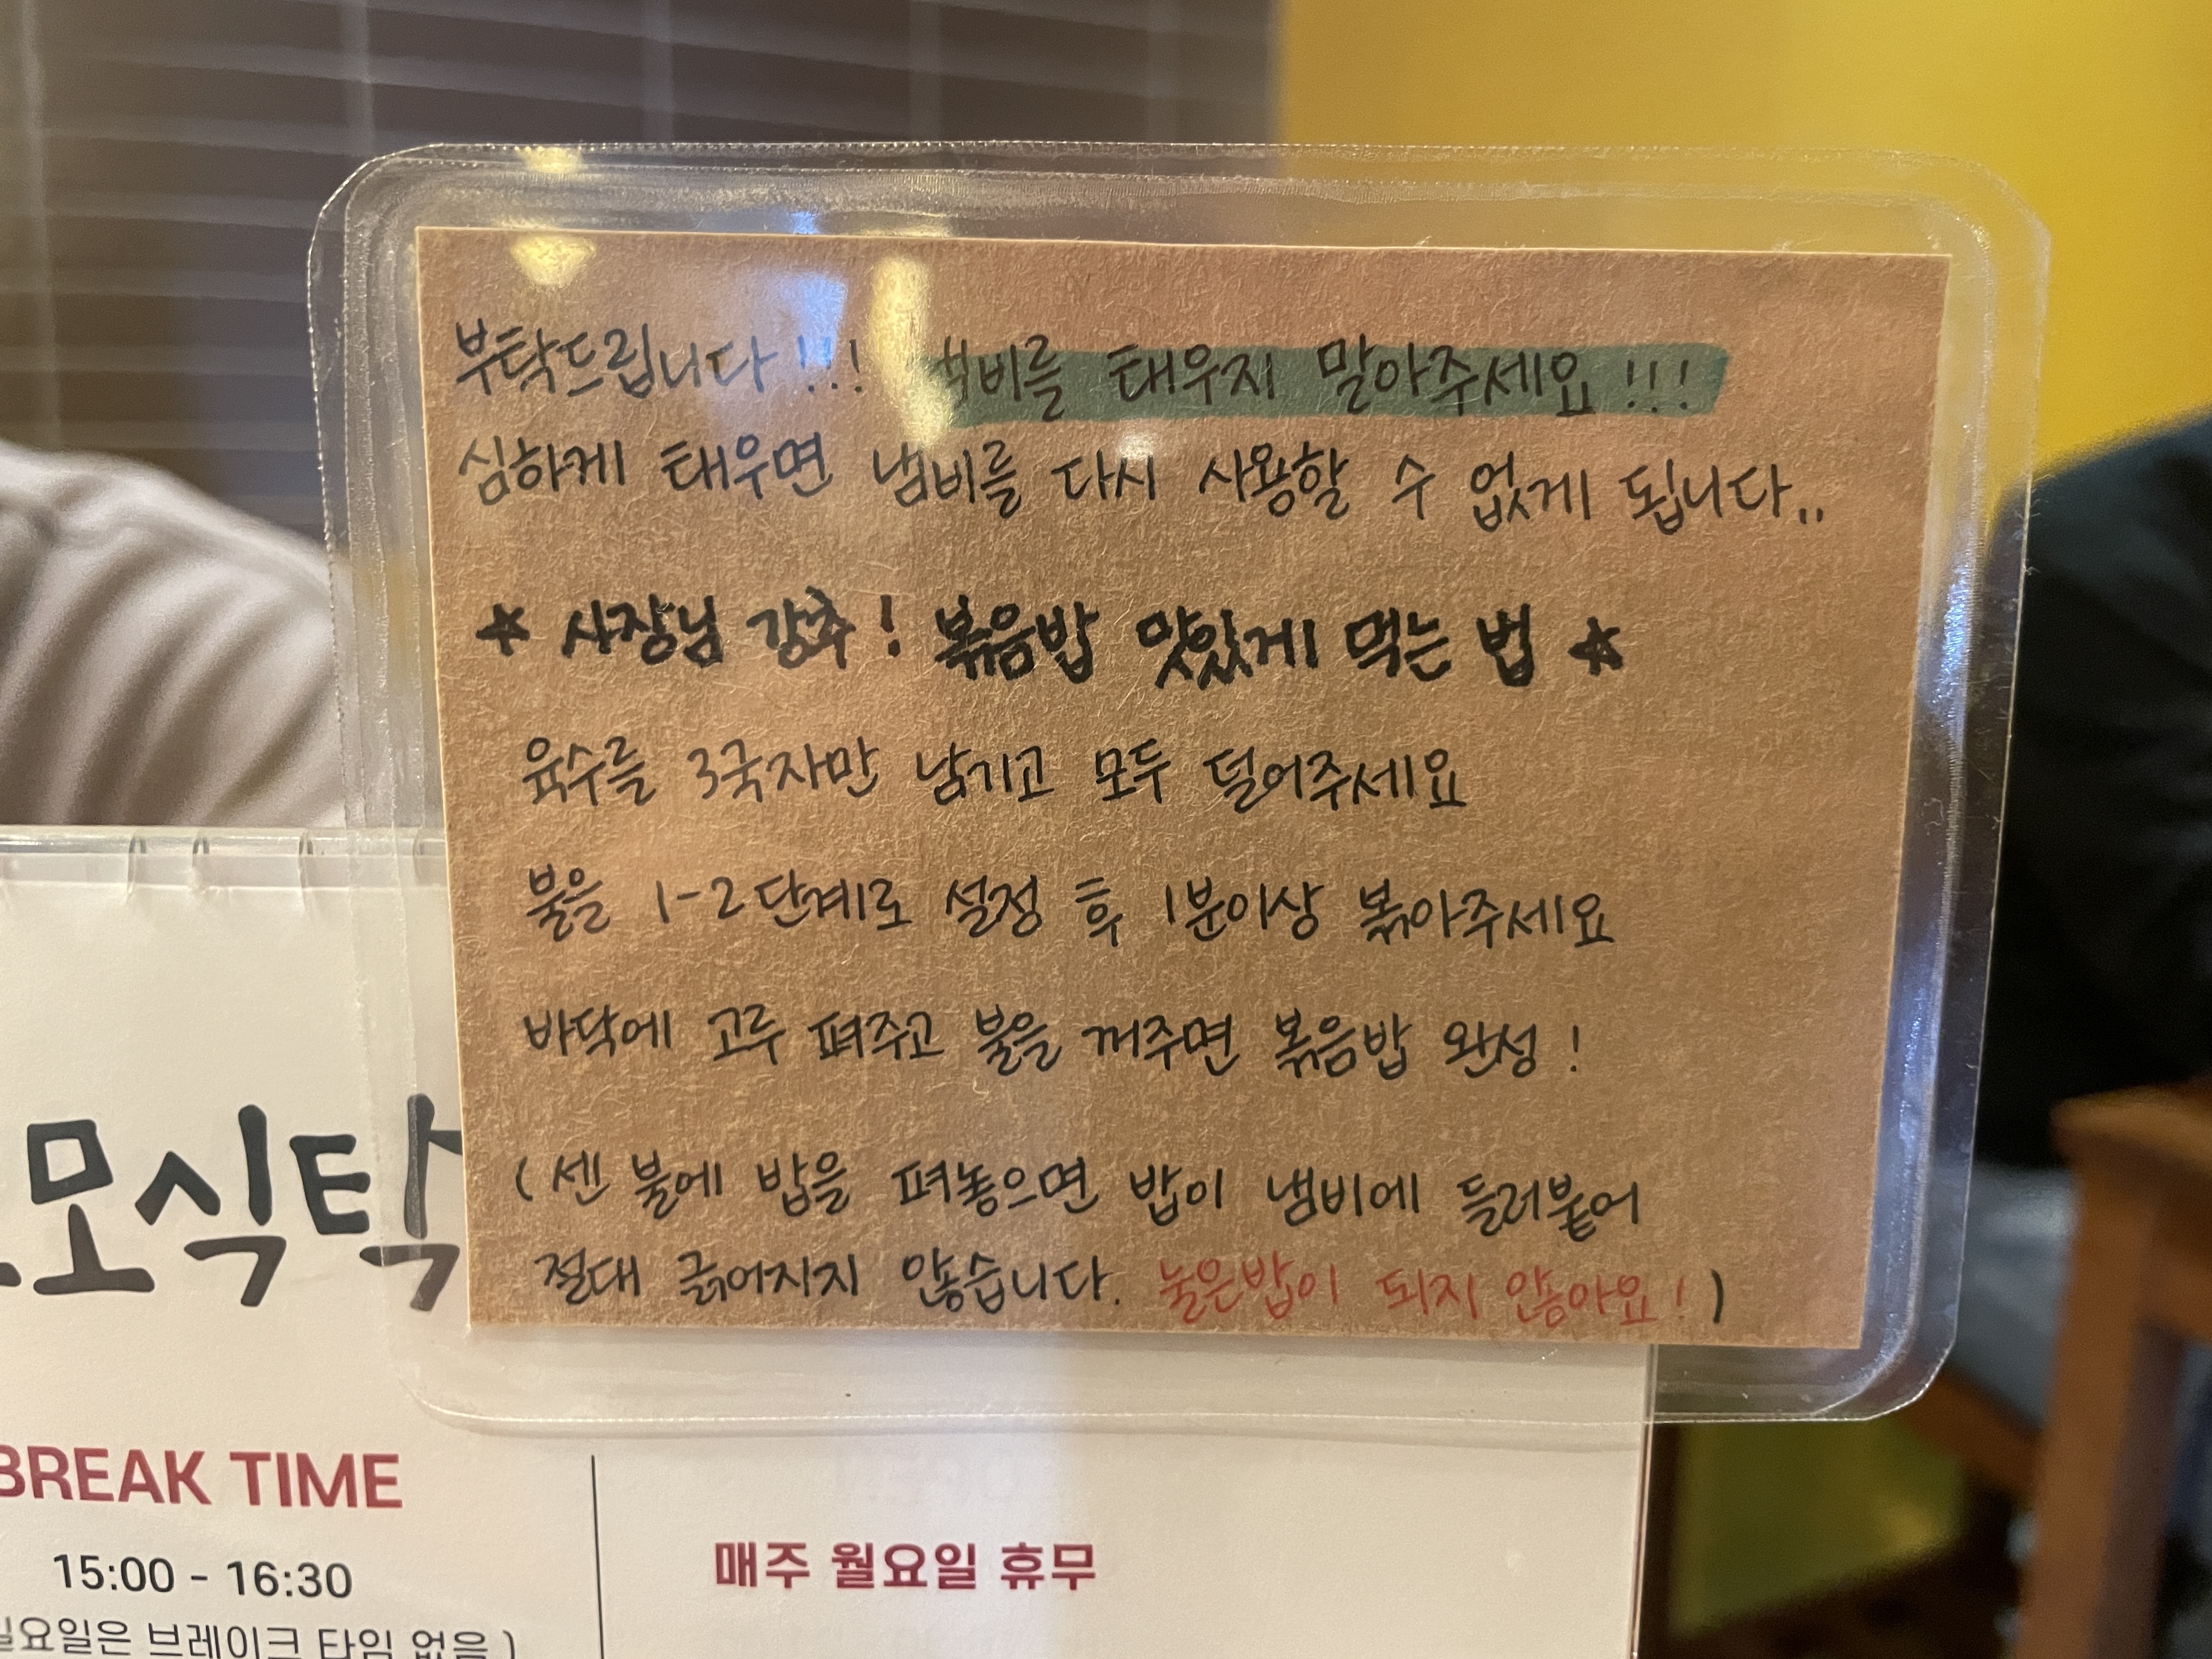 부탁드립니다!!! 냄비를 태우지 말아주세요!!!
심하게 태우면 냄비를 다시 사용할 수 없게 됩니다..
☆ 사장님 강추! 볶음밥 맛있게 먹는 법 ☆
육수를 3국자만 남기고 모두 덜어주세요
불을 1-2단계로 설정 후 1분이상 볶아주세요
바닥에 고루 펴주고 불을 꺼주면 볶음밥 완성!
(센 불에 밥을 펴놓으면 밥이 냄비에 들러붙어
절대 긁어지지 않습니다. 눌은밥이 되지 않아요!)
모식탁
BREAK TIME
15:00 - 16:30
일요일은 브레이크 타임 없음)
매주 월요일 휴무